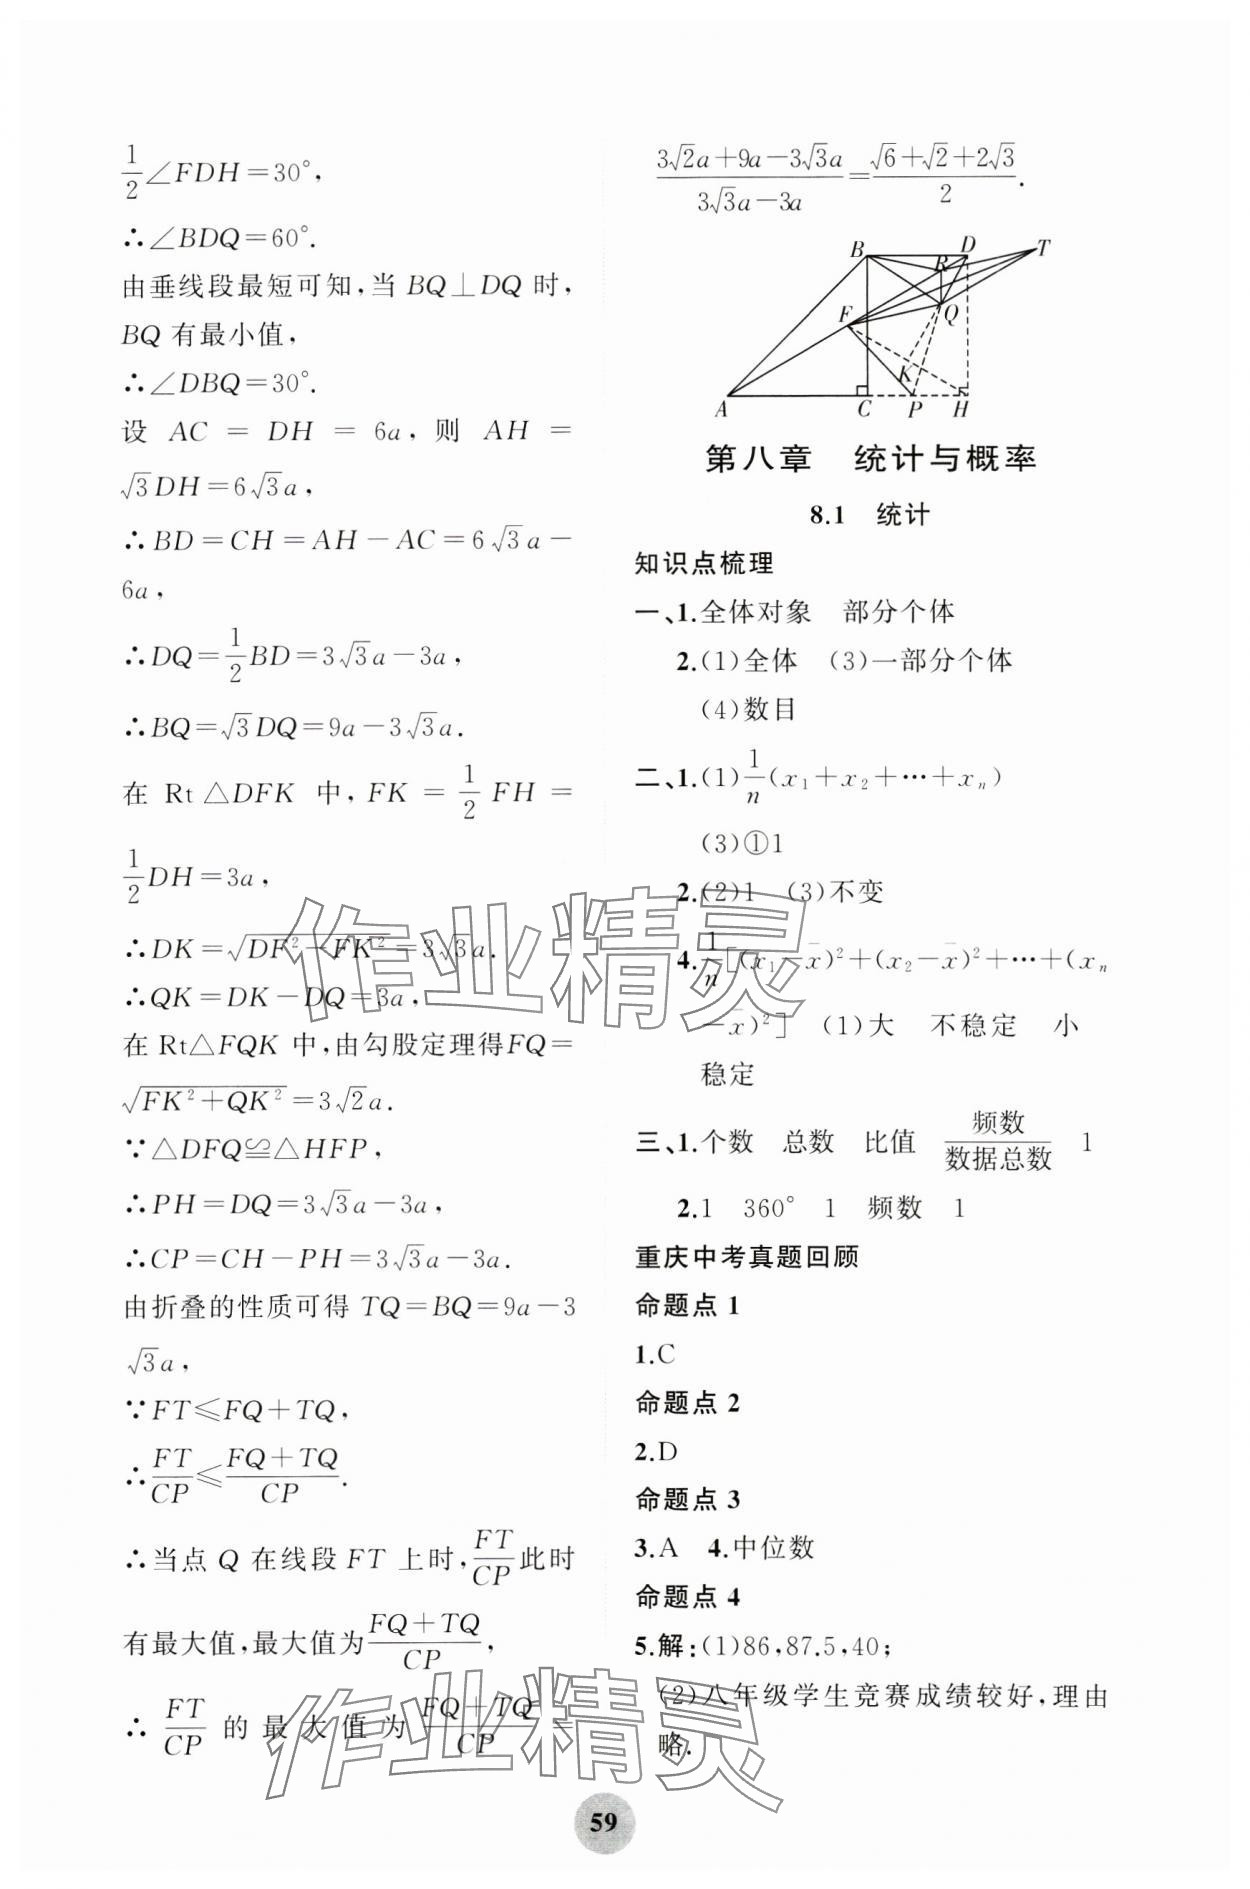 1/2∠FDH=30°,
∴∠BDQ=60°.
由垂线段最短可知,当 BQ⊥DQ 时,
BQ 有最小值,
∴∠DBQ=30°.
设 AC = DH = 6a, 则 AH =
√3DH=6√3a,
∴BD=CH=AH-AC=6√3a-
6a,
∴DQ=1/2BD=3√3a-3a,
∴BQ=√3DQ=9a-3√3a.
在 Rt△DFK 中, FK = 1/2 FH =
1/2DH=3a,
∴DK=√(DF²-FK²)=3√3a.
∴QK=DK-DQ=3a,
在 Rt△FQK 中,由勾股定理得FQ=
√(FK²+QK²)=3√2a.
∵△DFQ≌△HFP,
∴PH=DQ=3√3a-3a,
∴CP=CH-PH=3√3a-3a.
由折叠的性质可得 TQ=BQ=9a-3
√3a,
∵FT≤FQ+TQ,
∴FT/CP≤(FQ+TQ)/CP.
∴当点 Q 在线段 FT 上时,FT/CP此时
有最大值,最大值为(FQ+TQ)/CP,
∴ FT/CP 的最大值为 (FQ+TQ)/CP =
(3√2a+9a-3√3a)/(3√3a-3a)=(√6+√2+2√3)/2.
B
D
T
R
F
Q
K
A
C
P
H
第八章 统计与概率
8.1 统计
知识点梳理
一、1.全体对象 部分个体
2.(1)全体 (3)一部分个体
(4)数目
二、1.(1)1/n(x₁+x₂+⋯+xₙ)
(3)①1
2.(2)1 (3)不变
4.1/n[(x₁-x̄)²+(x₂-x̄)²+⋯+(xₙ
-x̄)²] (1)大 不稳定 小
稳定
三、1.个数 总数 比值 频数/数据总数 1
2.1 360° 1 频数 1
重庆中考真题回顾
命题点1
1.C
命题点2
2.D
命题点3
3.A 4.中位数
命题点4
5.解:(1)86,87.5,40;
(2)八年级学生竞赛成绩较好,理由
略.
作业精灵
作业精灵
59